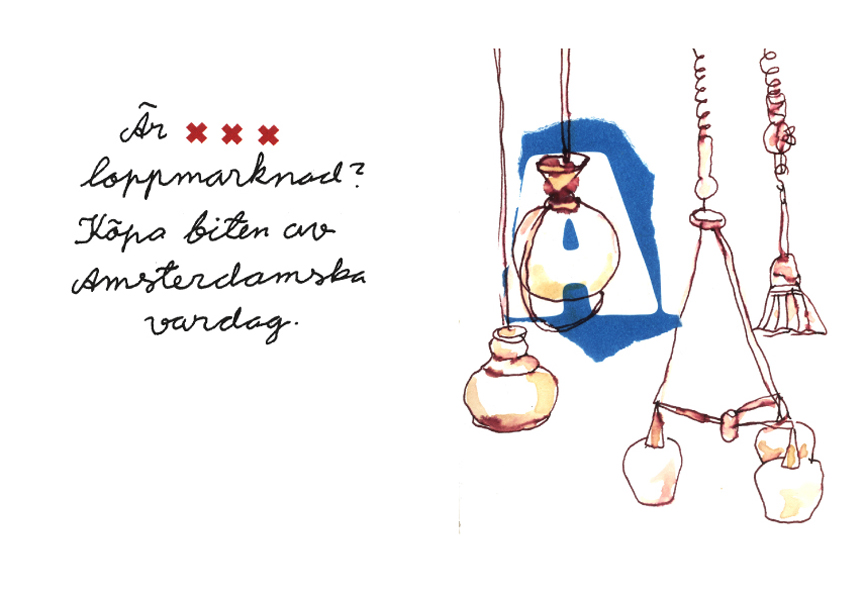 Är ✖ ✖ ✖
loppmarknad?
Köpa biten av
Amsterdamska
vardag.
A